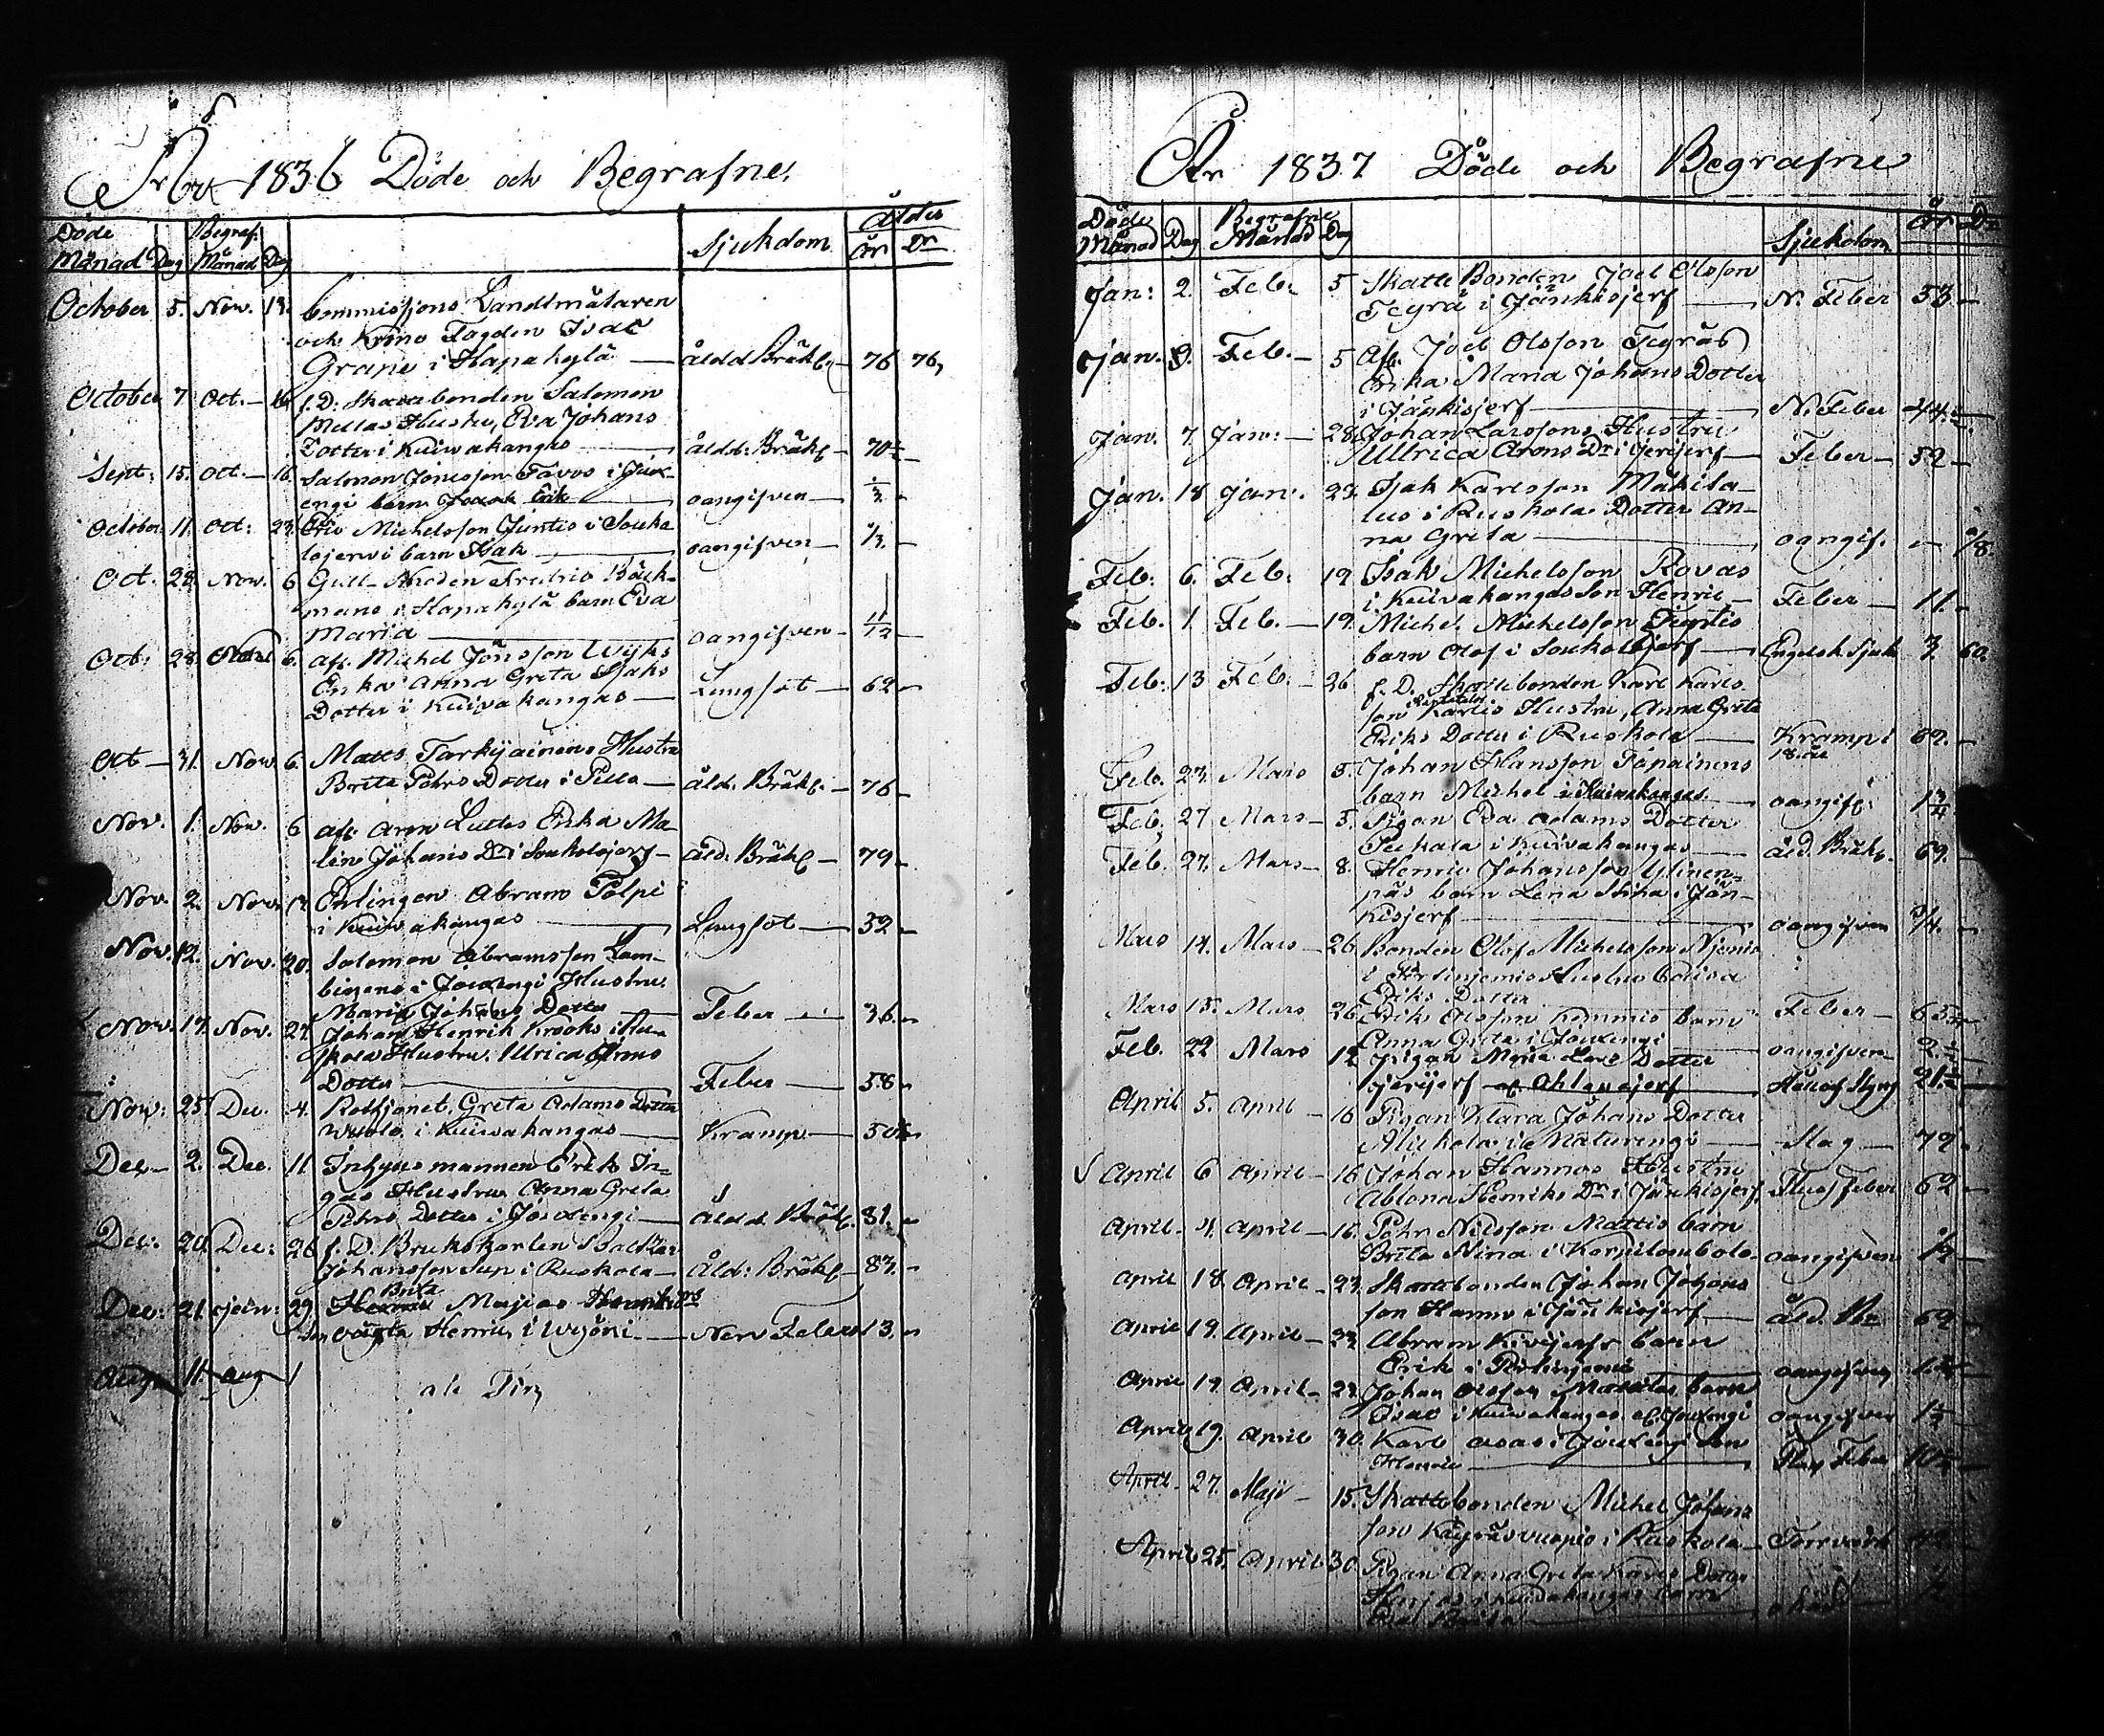 År 1836 Döde och Begrafne
Döde Begraf: Sjukdom Ålder
Månad Dag Månad Dag År Dr
October 5. Nov. 13. Commissions Landtmätaren
och Krono Fogden Isac
Grape i Hapakylä — åldd Bräkl. — 76 76,
October 7 Oct. — 16 f. D. Skattebonden Salomon
Mellas Hustru, Eva Johans
Dotter i Kuivakangas — åldd: Bräkl — 70½ —
Sept: 15. Oct — 16. Salomon Jönsson Tavos i Jux-
engi barn Erik — oangifven —
October 11. Oct: 23. Eric Michelsson Juntis i Souko
lojervi barn Isak — oangifven — 1/3. —
Oct. 28. Nov. 6 Gull-Smeden Fredric Bäck-
mans i Hapakylä barn Eva
Maria — oangifven — 11/12 —
Oct: 28. 6. afl. Michel Jönsson Wyks
Enka Anna Greta Isaks
Dotter i Kuivakangas — Lungsot — 62 —
Oct — 31. Nov. 6. Matts Torkijainens Hustru
Brita Pehrs Dotter i Pello — åld: Bräkl. — 76 —
Nov. 1. Nov. 6 afl. Aron Luttes Enka Ma-
lin Johans Dr i Soukolojerf — Åld: Bräkl — 79 —
Nov. 2. Nov. Enlingen Abram Polpi
i Kuivakangas — Lungsot — 32 —
Nov. 12. Nov. 20. Salomon Abramsson Lam-
biens i Jouxengi Hustru
Maria Johans Dotter — Feber — 36. —
Nov. 17. Nov. 27. Johan Henrik Krooks i Ru-
skola Hustru Ulrica Arons
Dotter — Feber — 58 —
Nov: 25 Dec. 4. Rothjonet Greta Adams Dotter
i Kuivakangas — Kramp —
Dec — 2. Dec. 11 Inhysesmannen Erik In-
gas Hustru Anna Greta
Pehrs Dotter i Jouxengi — åldd. Bräkl. 81. —
Dec: 20. Dec: 26 f. D. Brukskarlen Baltzar
Johansson Sup i Ruskola — Åld: Bräkl — 87. —
Brita
Dec: 21. Jan: 29. Majias
son Henric i — Nerv Feber 13. —
Aug 11. Aug
År 1837 Döde och Begrafne
Döde Begrafne Sjukdom År Dr
Månad Dag Månad Dag
Jan: 2. Feb. 5 Skatte Bonden Joel Olsson
Tegrä i Jänkisjerf — N. Feber 53 —
Jan. 9. Feb. — 5 Afl. Joel Olsson Tegräs
Enka Maria Johans Dotter
i Jänkisjerf — N. Feber 44
Jan. 7. Jan: — 28. Johan Larssons Hustru
Ullrica Arons Dr i Jerijerf — Feber — 52 —
Jan. 18 Jan. 29. Isak Karlsson Mäkita-
lus i Ruskola Dotter An-
na Greta — oangif. —
Feb. 6. Feb. 19 Isak Michelsson Rovas
i Kuivakangas Son Henric — Feber — 11. —
Feb. 1 Feb. — 19. Michel Michelsson Juntis
barn Olof i Soukolojerf — Engelsk Sjuk 3. 60.
Feb: 13 Feb. — 26 f. D. Skattebonden Karl Karls
son Karlis Hustru, Anna Greta
Eriks Dotter i Ruskola — Kramp i
18. år
Feb. 23. Mars 5. Johan Hansson Tapainens
barn Michel i Kuivakangas — oangif.
Feb. 27 Mars — 5. Pigan Eva Adams Dotter
i Kuivakangas — åld. Bräkl. 69. —
Feb. 27. Mars — 8. Henric Johansson Ylinen-
päs barn Lena Stina i Jän-
kisjerf — oangifven 3/4. —
Mars 14. Mars — 26. Bonden Olof Michelsson Niemis
i Pirtiniemis Hustru
Eriks Dotter Feber —
Mars 15. Mars 26. Eriks Olsson barn
Anna Greta i Jouxengi — oangifven —
Feb. 22 Mars 12 Pigan Maria Lars Dotter
Jerijerf
April 5. April — 16 Pigan Klara Johans Dotter
i Naturengi — Slag — 79.
April 6 April — 16 Johan Hannus Hustru
Ablona Henriks Dr i Jänkisjerf. Fluss Feber 62 —
April. 4. April — 16. Pehr Nilsson Mattis barn
Brita Stina i Korpilombolo. oangifven ½ —
April 18. April — 23. Skattebonden Johan Johans
son Hannu i Jänkisjerf — åld. Br 69 —
April 19. April — 23 Abram Kivijerfs barn
Erik i Pirtiniemi — oangifven
April 19. April — 23. Johan Olsson barn
Isac i Kuivakangas oangifven
April 19. April 30. Karl i Jouxengi Son
— Fluss Feber
April 27. Maji — 15. Skattebonden Michel Johans
son i Ruskola —
April 25. April 30. Pigan Anna Greta Karls Dotter
i Kuivakangas barn
Eva Brita —